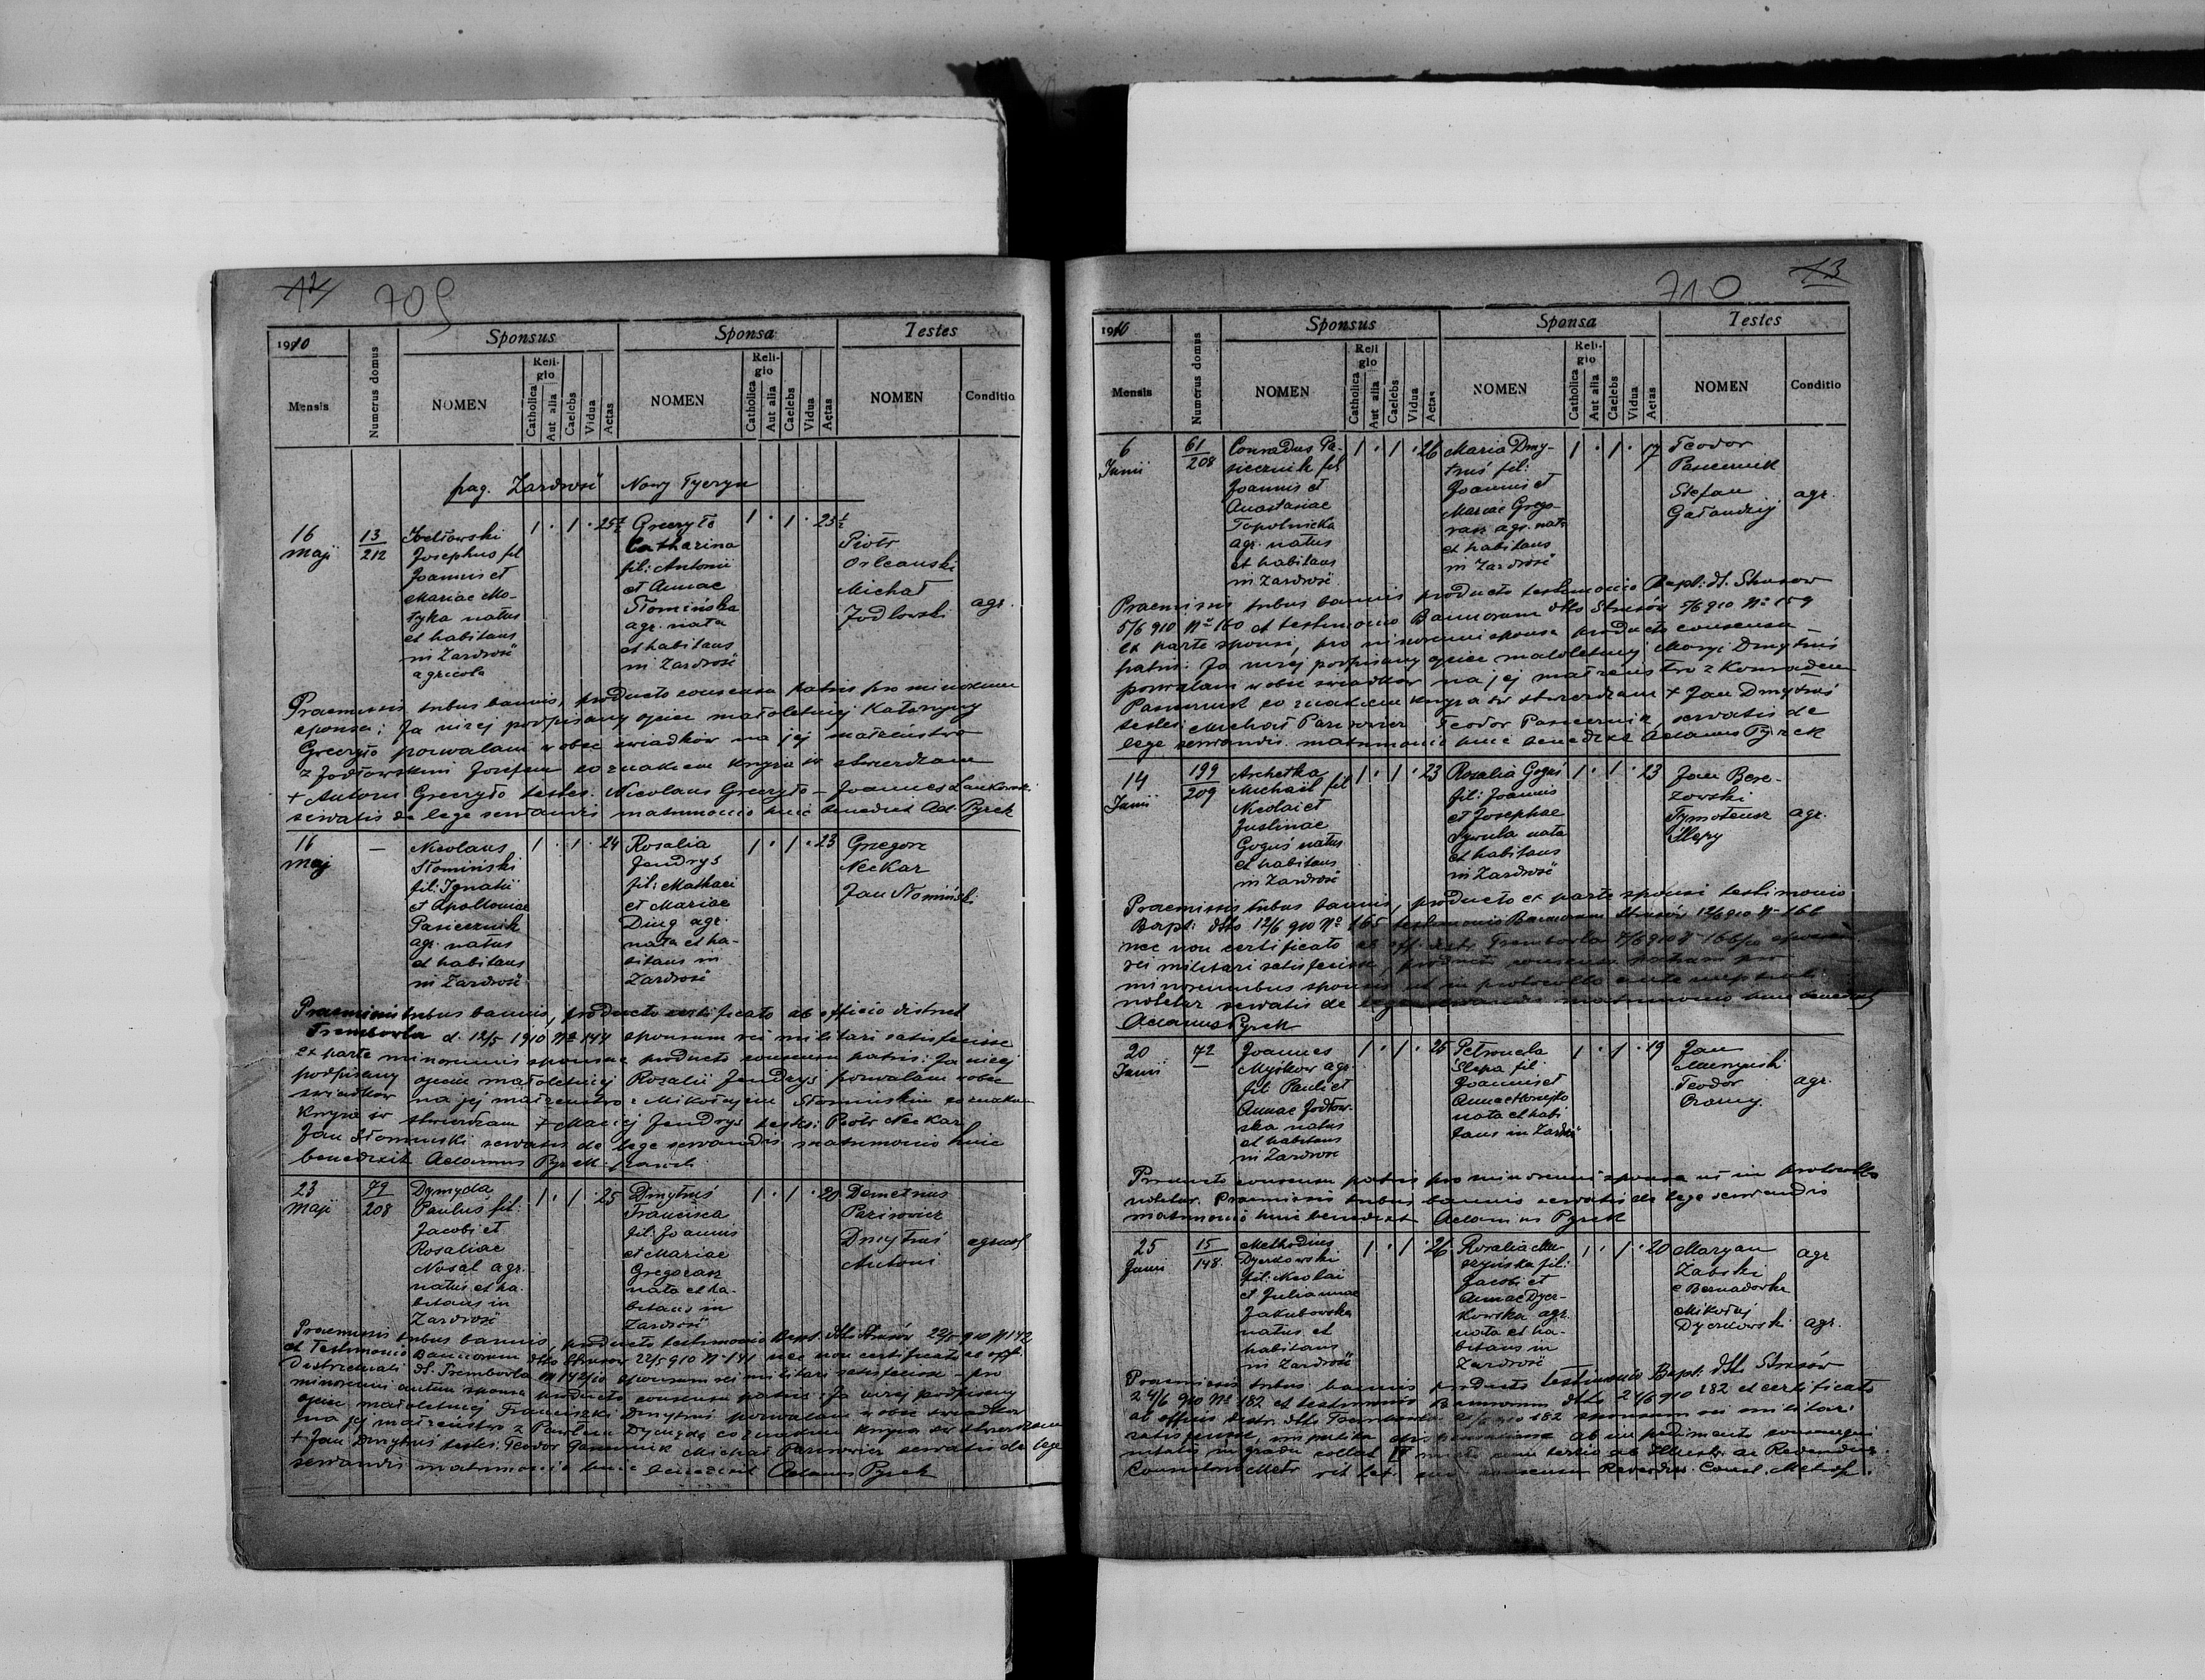 12
709
1910
Mensis
Numerus domus
Sponsus
NOMEN
Reli-
gio
Catholica
Aut alia
Caelebs
Vidua
Aetas
Sponsa
NOMEN
Reli-
gio
Catholica
Aut alia
Caelebs
Vidua
Aetas
Testes
NOMEN
Conditio
pag. Zazdrość Nowy Tyczyn
16
Maji
13
212
Jodłowski
Josephus fil
Joannis et
Mariae Mo-
tyka natus
et habitans
in Zazdrość
agricola
1 . 1 . 25
Greczyło
Catharina
fil: Antonii
et Annae
Słomińska
agr. nata
et habitans
in Zazdrość
1 . 1 . 23½
Piotr
Orleański
Michał
Jodłowski
agr.
Praemissis tribus bannis, producto consensu patris pro minorenni
sponsa: Ja niżej podpisany ojciec małoletniej Katarzyny
Greczyło pozwalam wobec świadków na jej małżeństwo
z Jodłowskim Józefem co znakiem krzyża św stwierdzam
+ Antoni Greczyło testes: Nicolaus Greczyło – Joannes
servatis de lege servandis matrimonio huic benedixit Ad. Pyrek
16
Maj
—
Nicolaus
Słomiński
fil: Ignatii
et Apolloniae
Pasiecznik
agr. natus
et habitans
in Zazdrość
1 . 1 . 24
Rosalia
Jendrys
fil: Mathaei
et Mariae
Ding agr.
nata et ha-
bitans in
Zazdrość
1 . 1 . 23
Grzegorz
Neckar
Jan Słomiński
Praemissis tribus bannis, producto certificato ab officio district
Trembowla d. 12/5 1910 Nº 144 sponsum rei militari satisfecisse
ex parte minorennis sponsae producto consensu patris: Ja niżej
podpisany ojciec małoletniej Rosalii Jendrys pozwalam wobec
świadków na jej małżeństwo z Mikołajem Słomińskim co znakiem
krzyża św stwierdzam + Maciej Jendrys testes: Piotr Neckar
Jan Słomiński servatis de lege servandis matrimonio huic
benedixit Adamus Pyrek
23
Maji
79
208
Dymyda
Paulus fil:
Jacobi et
Rosaliae
Nosal agr.
natus et ha-
bitans in
Zazdrość
1 . 1 . 25
Dmytruś
Francisca
fil: Joannis
et Mariae
Gregorasz
nata et ha-
bitans in
Zazdrość
1 . 1 . 20
Demetrius
Parisowicz
Dmytruś
Antoni
Praemissis tribus bannis, producto testimonio Bapt. dtto Strusów 22/5 910 Nº 142
et testimonio Bannorum dtto Strusów 22/5 910 Nº 141 nec non certificato ab off.
Districtuali dt. Trembowla sponsum rei militari satisfecisse – pro
minorenni autem sponsa producto consensu patris: Ja niżej podpisany
ojciec małoletniej Franciszki Dmytruś pozwalam wobec świadków
na jej małżeństwo z Pawłem Dymydą co znakiem krzyża św stwierdzam
+ Jan Dmytruś testes: Teodor Pasiecznik Michał Parisowicz servatis de lege
servandis matrimonio huic benedixit Adamus Pyrek
13
710
1910
Mensis
Numerus domus
Sponsus
NOMEN
Reli
gio
Catholica
Aut alia
Caelebs
Vidua
Aetas
Sponsa
NOMEN
Reli-
gio
Catholica
Aut alia
Caelebs
Vidua
Aetas
Testes
NOMEN
Conditio
6
Junii
61
208
Conradus Pa-
siecznik fil
Joannis et
Anastasiae
Topolnicka
agr. natus
et habitans
in Zazdrość
1 . 1 . 26
Maria Dmy-
truś fil:
Joannis et
Mariae Grego-
rasz agr. nata
et habitans
in Zazdrość
1 . 1 . 17
Teodor
Pasiecznik
Stefan
Gałandzij
agr.
Praemissis tribus bannis producto testimonio Bapt: dt. Strusów
5/6 910 Nº 160 et testimonio Bannorum dtto Strusów 5/6 910 Nº 159
ex parte sponsi, pro minorenni sponsa producto consensu
patris: Ja niżej podpisany ojciec małoletniej Maryi Dmytruś
pozwalam wobec świadków na jej małżeństwo z Konradem
Pasiecznik co znakiem krzyża św stwierdzam + Jan Dmytruś
testes: Michał Parisowicz Teodor Pasiecznik, servatis de
lege servandis matrimonio huic benedixit Adamus Pyrek
14
Junii
199
209
Archetka
Michaël fil
Nicolai et
Justinae
Goguś natus
et habitans
in Zazdrość
1 . 1 . 23
Rosalia Goguś
fil: Joannis
et Josephae
nata
et habitans
in Zazdrość
1 . 1 . 23
Jan Bere-
zowski
Tymoteusz
Ślepy
agr.
Praemissis tribus bannis, producto ex parte sponsi testimonio
Bapt: dtto 12/6 910 Nº 165 testimonio Bannorum Strusów 12/6 910 Nº 166
nec non certificato ab off. distr. Trembowla sponsum
rei militari satisfecisse, producto consensu patrum pro
minorennibus sponsis ut in protocollo ante nuptiali
notetur servatis de lege servandis matrimonio huic benedixit
Adamus Pyrek
20
Junii
72
Joannes
Myśkow agr.
fil Pauli et
Annae Jodłow-
ska natus
et habitans
in Zazdrość
1 . 1 . 25
Petronela
Ślepa fil
Joannis et
Annae
nata et habi
tans in Zazdrość
1 . 1 . 19
Jan
Teodor
agr.
Producto consensu patris pro minorenni sponsa ut in protocollo
notetur. Praemissis tribus bannis servatis de lege servandis
matrimonio huic benedixit Adamus Pyrek
25
Junii
15
148
Methodius
Dyczkowski
fil: Nicolai
et Juliannae
Jakubowska
natus et
habitans
in Zazdrość
1 . 1 . 26
Rosalia Mu-
fil:
Jacobi et
Annae Dycz-
kowska agr.
nata et ha-
bitans in
Zazdrość
1 . 1 . 20
Maryan
Zabski
e Bernadowka
Mikołaj
Dyczkowski
agr
agr.
Praemissis tribus bannis producto testimonio Bapt. dtto Strusów
24/6 910 Nº 182 et testimonio Bannorum dtto 24/6 910 182 et certificato
ab officio distr. dtto Trembowla 182 sponsum rei militari
satisfecisse, impetita dispensatione ab impedimento consangui
nitatis in gradu collat IV mixto cum tertio ab Illustr. ac Reverendiss.
Consistorio Metr rit lat cum consensu Reverdiss. Consist. Metrop.